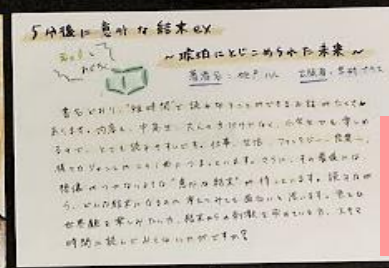 5分後に意外な結末ex
~琥珀にとじこめられた未来~
ヨシ!
わくわく
著者名:桃戸ハル 出版社:学研プラス
書名どおり、"短時間"で読み切ることのできるお話がたくさん
あります。内容も、中高生、大人のうけ
るので、とても読みやすいです。仕事、生活、ファンタジー、恋愛…、
様々なジャンルのこの1冊につまっています。さらに、その最後には、
想像のつかないような"意外な結末"が待っています。読みなが
ら、どんな結末になるのか考えてみても面白いと思います。色々な
世界観を楽しみたい方、結末からの刺激を求めている方、スキマ
時間に読んでみてはいかがですか?